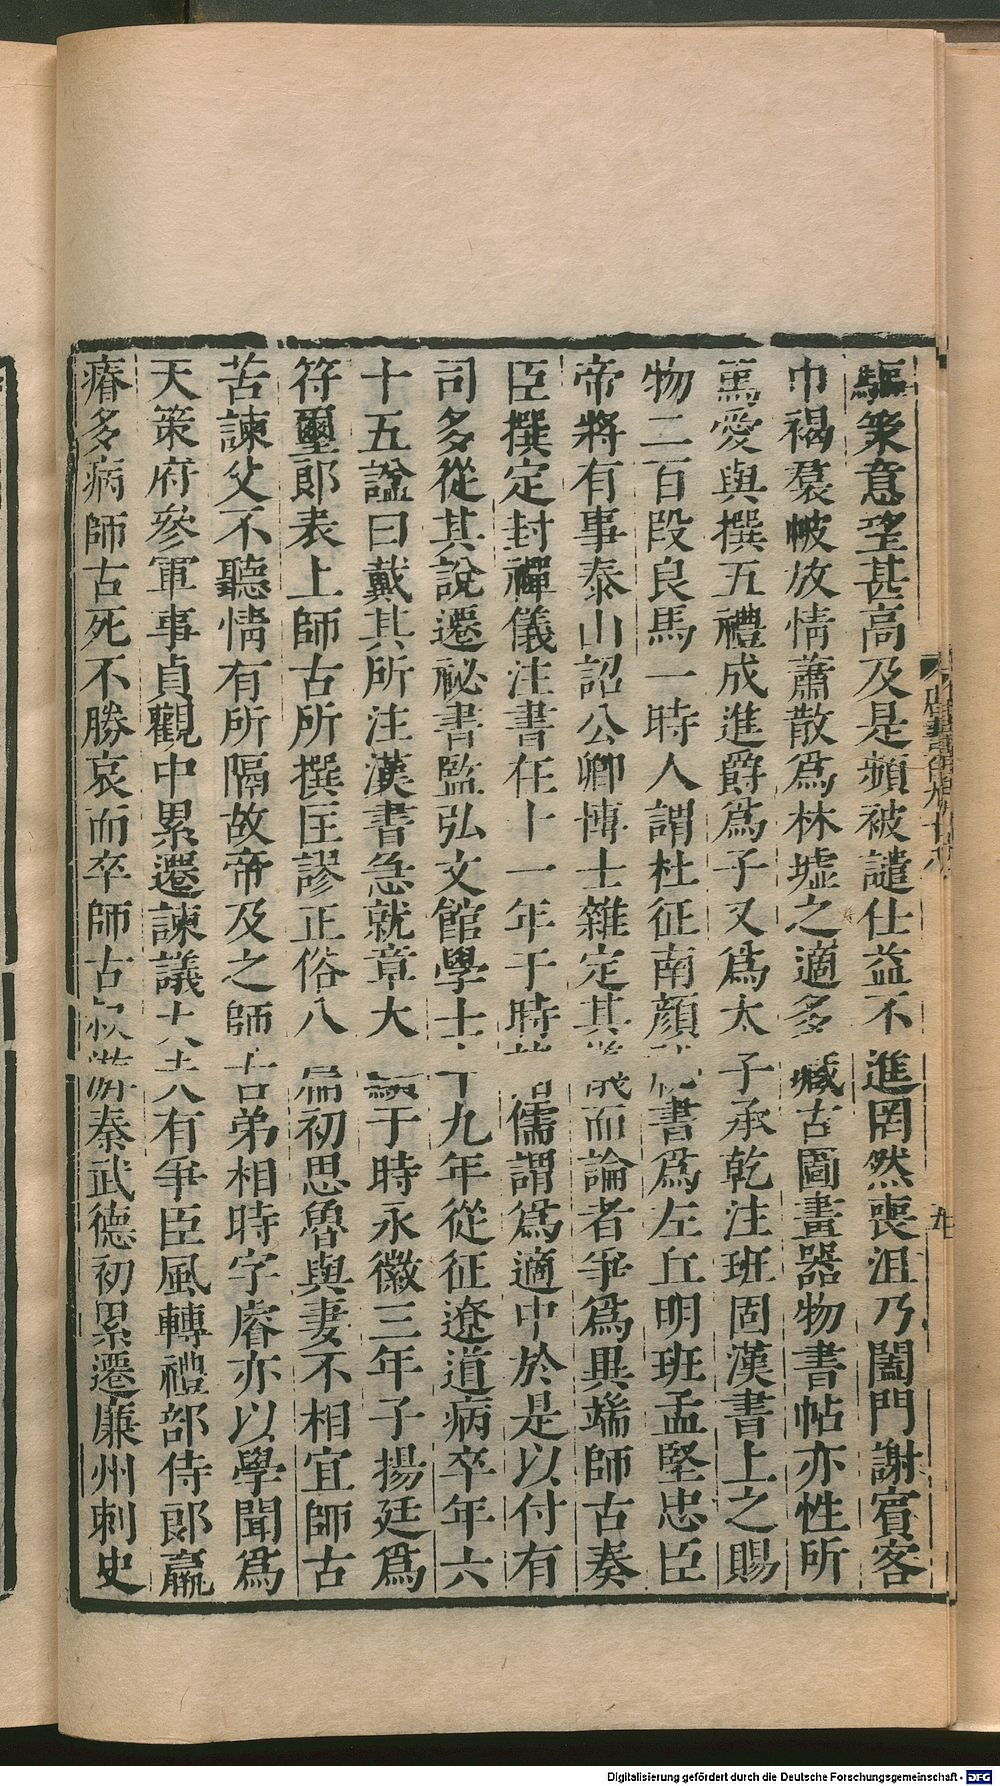 驅策意望甚高及是頻被譴仕益不進罔然喪沮乃闔門謝賓客
巾褐裠帔放情蕭散爲林墟之適多藏古圖畫器物書帖亦性所
篤愛與撰五禮成進爵爲子又爲太子承乾注班固漢書上之賜
物二百段良馬一時人謂杜征南顏祕書爲左丘明班孟堅忠臣
帝將有事泰山詔公卿博士雜定其儀而論者爭爲異端師古奏
臣撰定封禪儀注書在十一年于時諸儒謂爲適中於是以付有
司多從其說遷祕書監弘文館學士十九年從征遼道病卒年六
十五諡曰戴其所注漢書急就章大顯于時永徽三年子揚廷爲
符璽郎表上師古所撰匡謬正俗八篇初思魯與妻不相宜師古
苦諫父不聽情有所隔故帝及之師古弟相時字睿亦以學聞爲
天策府參軍事貞觀中累遷諫議大夫有爭臣風轉禮部侍郎羸
瘠多病師古死不勝哀而卒師古叔游秦武德初累遷廉州刺史
Digitalisierung gefördert durch die Deutsche Forschungsgemeinschaft - DFG